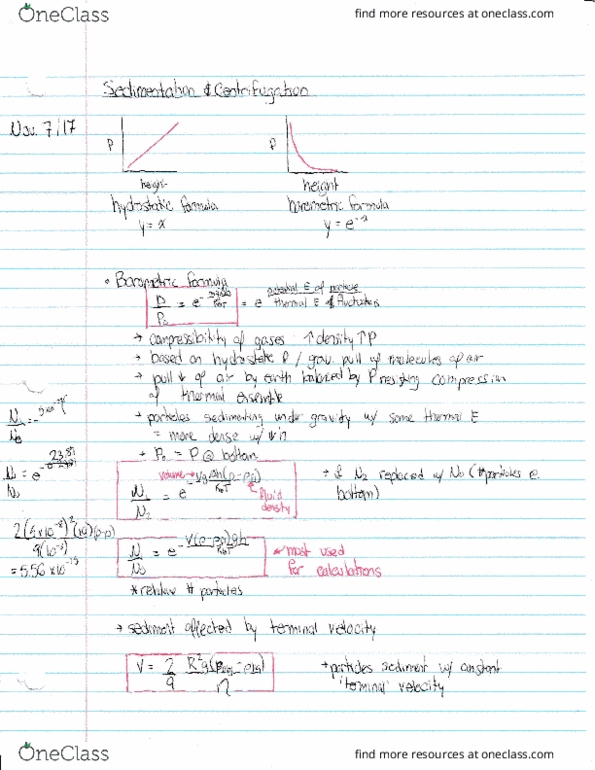 OneClass
find more resources at oneclass.com
Sedimentation & Centrifugation
Nov. 7/17
P
height
hydrostatic formula
y = x
P
height
barometric formula
y = e⁻ˣ
• Barometric formula
P/P₀ = e = e potential E of particle / thermal E of fluctuations
→ compressibility of gases ↑ density ↑ P
→ based on hydrostatic P / grav. pull of molecules of air
→ pull ↓ of air by earth balanced by P resisting compression
of thermal ensemble
→ particles sedimenting under gravity w/ some thermal E
= more dense w/ ↓ h
→ P₀ = P @ bottom
N/N₀ =
N/N₀ = e
volume → Vg∆h(ρ-ρ₀)
N₁/N₂ = e
fluid
density
→ if N₂ replaced w/ N₀ (# particles @
bottom)
2(5x10⁻⁸)²
9(10⁻³)
= 5.56 x 10⁻¹⁵
N/N₀ = e - V(ρ-ρ₀)gh / k_BT
← most used
for calculations
* relative # particles
→ sediment affected by terminal velocity
V = 2/9 R²g / η
→ particles sediment w/ constant
'terminal' velocity
OneClass
find more resources at oneclass.com